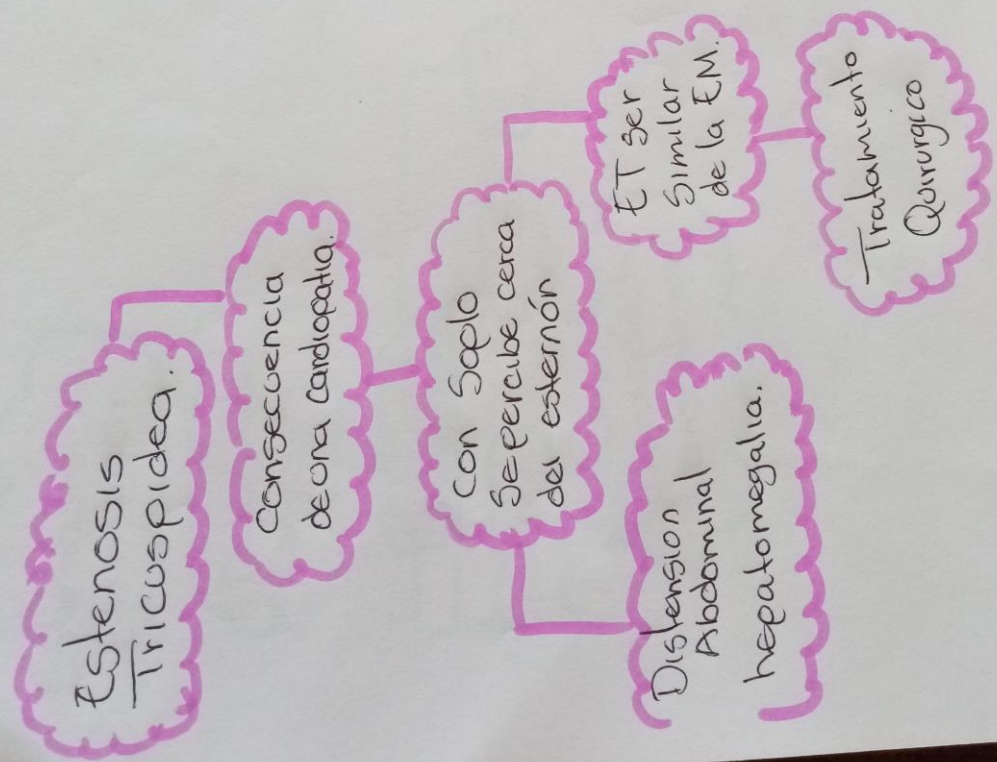 Estenosis
Tricuspidea.
Consecuencia
de una cardiopatia.
Con Soplo
Se percibe cerca
del esternón
Distension
Abdominal
hepatomegalia.
ET ser
Similar
de la EM.
Tratamiento
Quirurgico